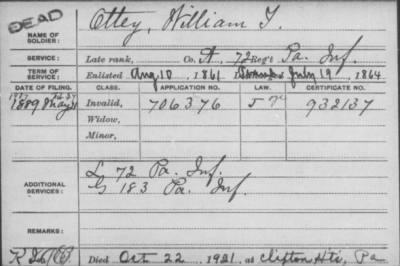 DEAD
NAME OF SOLDIER: Ottey, William T.
SERVICE: Late rank, Co. A, 72 Reg't Pa. Inf.
TERM OF SERVICE: Enlisted Aug 10, 1861 July 19, 1864
DATE OF FILING. CLASS. APPLICATION NO. LAW. CERTIFICATE NO.
1889 May Invalid, 706376 932137
Widow,
Minor,
ADDITIONAL SERVICES: L 72 Pa. Inf.
G 183 Pa. Inf.
REMARKS:
Died Oct 22, 1921, at Clifton Hts, Pa